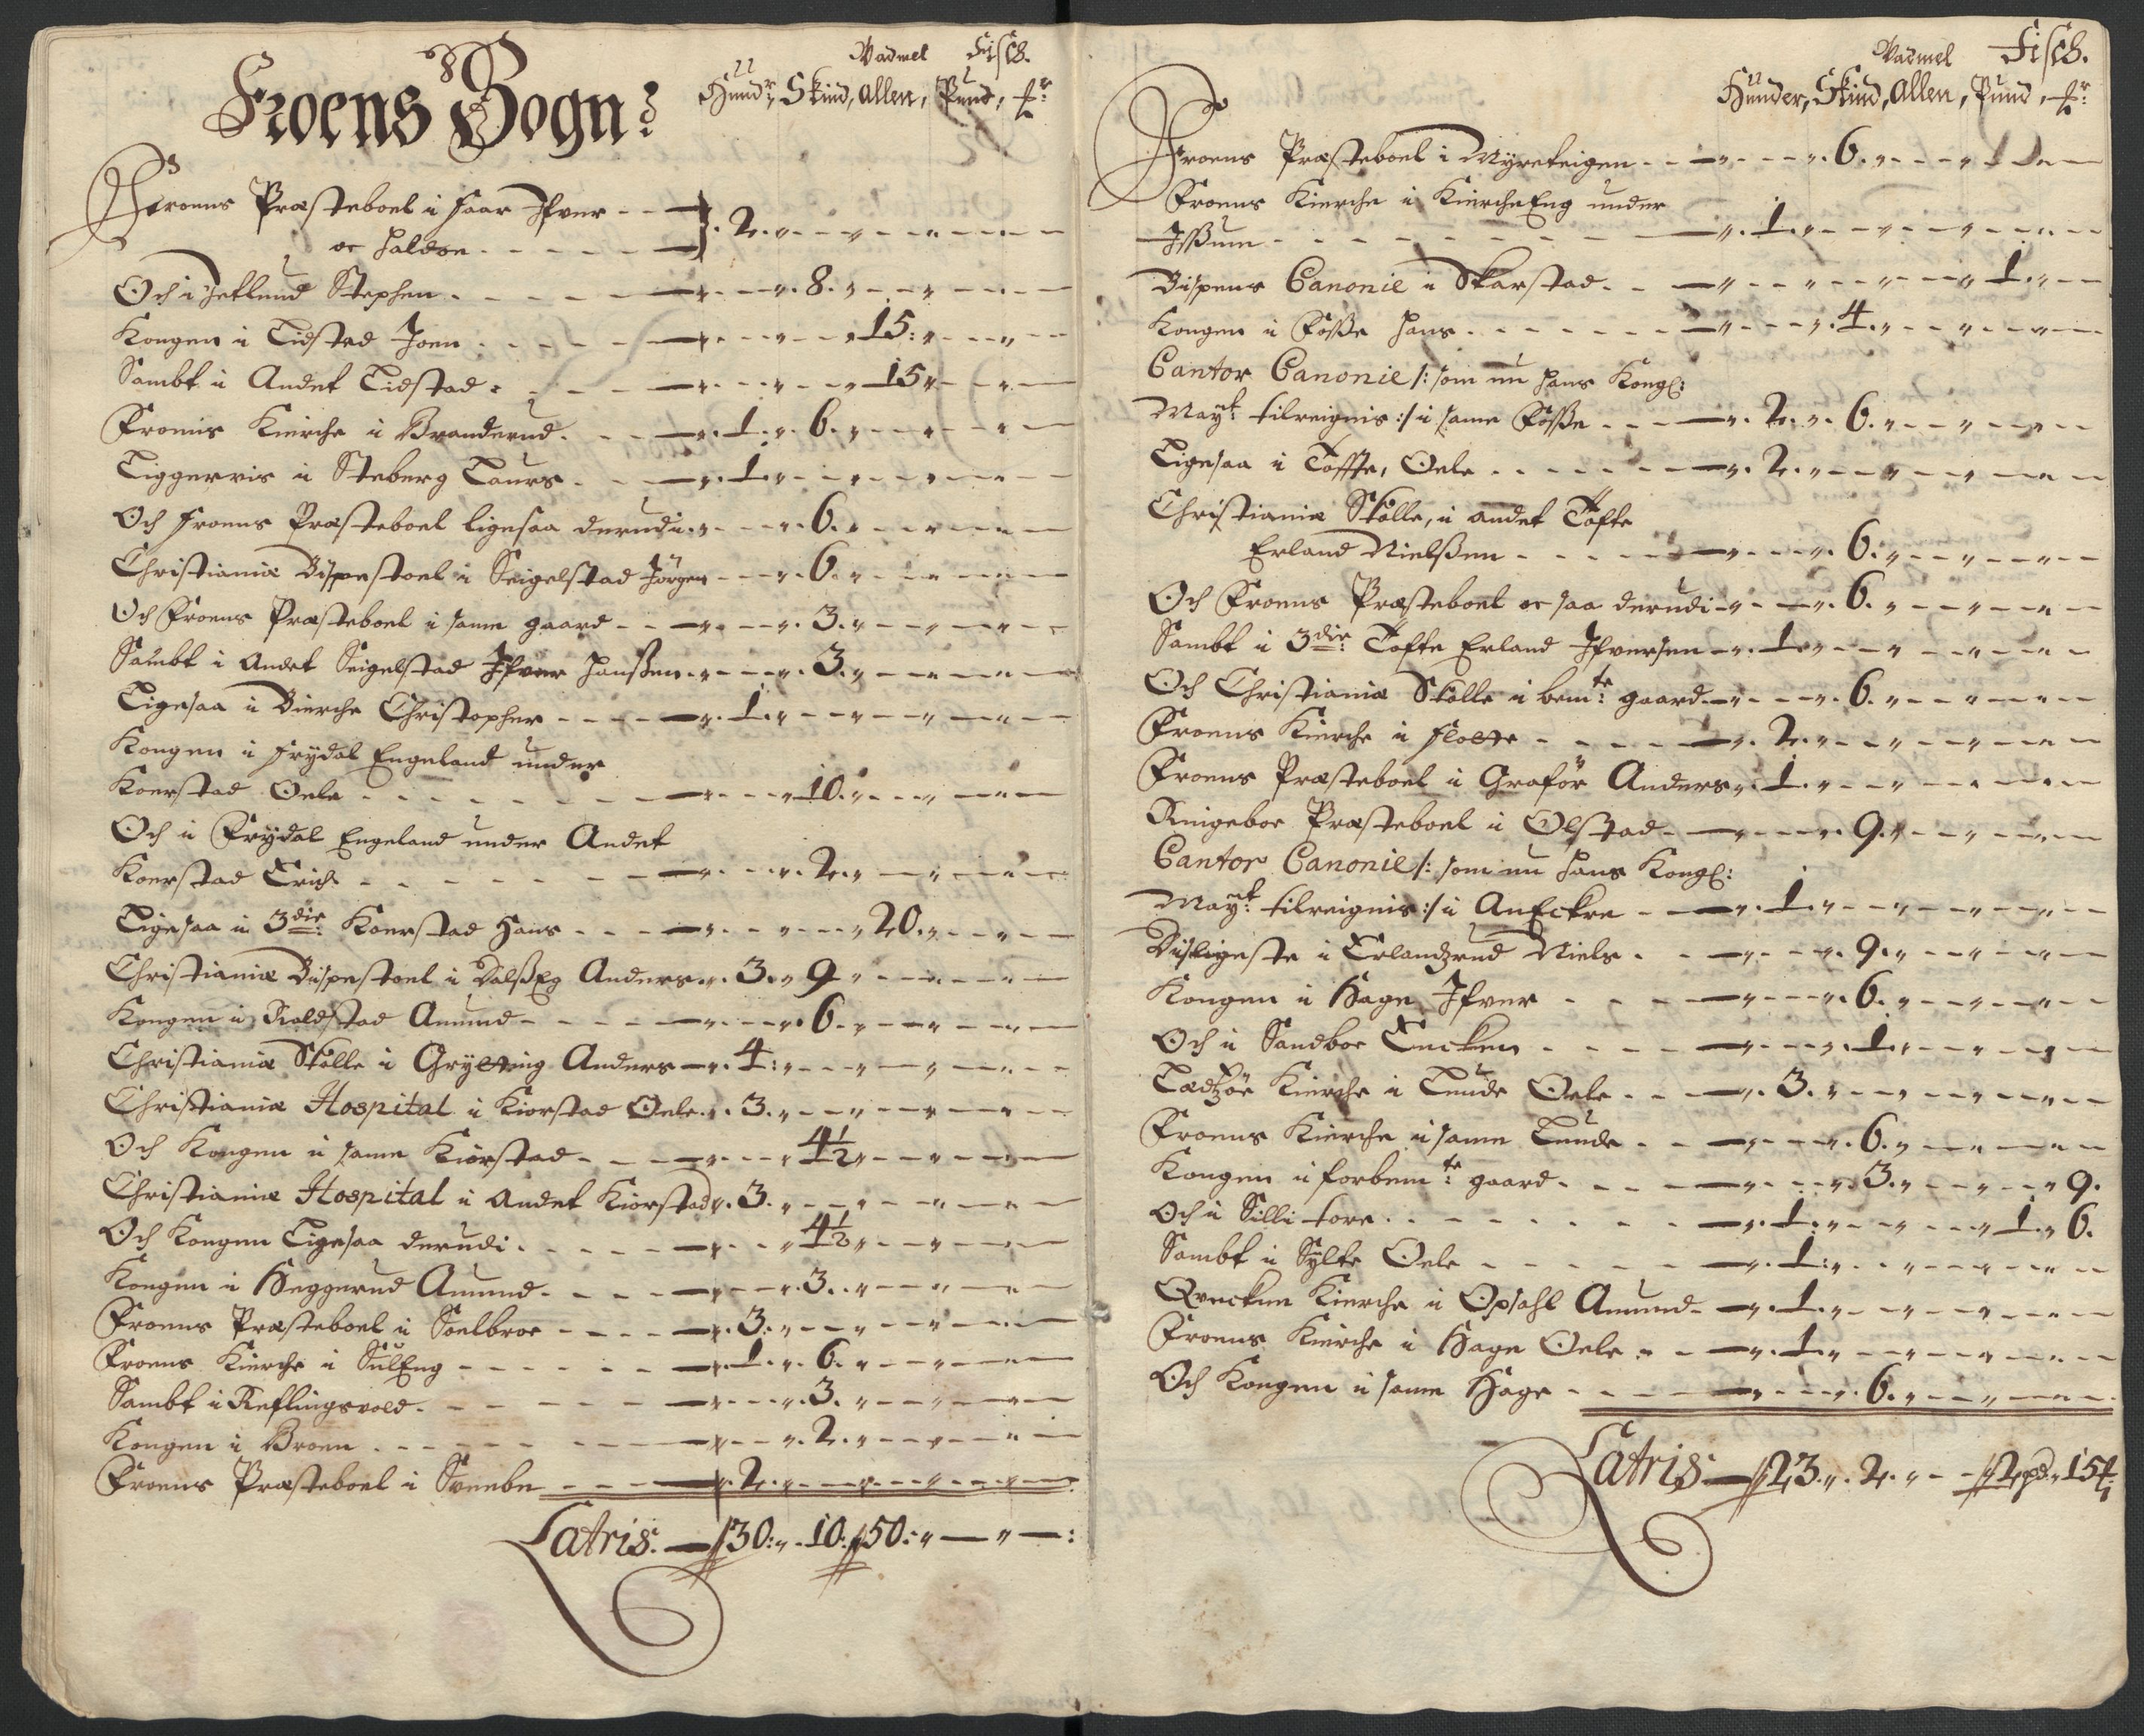 Froens Sogn:
Vadmel Fisch.
Hundr, Skind, Allen, Pund, ℔r:
Froens Præsteboel i Faar Ifver - - -
oc Haldor - - - - - } 2. „ - - „ - - „ - - „ - -
Och i Jetlund Stephen - - - „ - - „ 8. „ - - „ - - „ - -
Kongen i Lidstad Joen - - - „ - - „ - - „ 15: „ - - „ - -
Sambt i Andet Lidstad - - - „ - - „ - - „ 15 „ - - „ - -
Froens Kierche i Branderud - - - „ 1. „ 6. „ - - „ - - „ - -
Liggervis i Steberg Laurs - - - „ 1. „ - - „ - - „ - - „ - -
Och Froens Præsteboel ligesaa derudi „ - - „ 6. „ - - „ - - „ - -
Christianiæ Bispestoel i Seigelstad Jörgen - - „ 6. „ - - „ - - „ - -
Och Froens Præsteboel i same gaard - - „ - - „ 3. „ - - „ - - „ - -
Sambt i Andet Seigelstad Ifver Hanßen „ - - „ 3. „ - - „ - - „ - -
Ligesaa i Bierche Christopher - - - „ 1. „ - - „ - - „ - - „ - -
Kongen i Frydal Engeland under
Koerstad Oele - - - „ - - „ 10. „ - - „ - - „ - -
Och i Frydal Engeland under Andet
Koerstad Erich - - - „ - - „ 2. „ - - „ - - „ - -
Ligesaa i 3die: Koerstad Hans - - - „ - - „ - - „ 20. „ - - „ - -
Christianiæ Bispestoel i Anders „ 3. „ 9 „ - - „ - - „ - -
Kongen i Kioldstad Amund - - - „ - - „ 6. „ - - „ - - „ - -
Christianiæ Skolle i Grytting Anders - „ 4: „ - - „ - - „ - - „ - -
Christianiæ Hospital i Kiorstad Oele „ 3. „ - - „ - - „ - - „ - -
Och Kongen i same Kiörstad - - - „ - - „ 4½ „ - - „ - - „ - -
Christianiæ Hospital i Andet Kiorstad „ 3. „ - - „ - - „ - - „ - -
Och Kongen Ligesaa derudi - - - „ - - „ 4½ „ - - „ - - „ - -
Kongen i Heggerud Amund - - - „ - - „ 3. „ - - „ - - „ - -
Froens Præsteboel i Soelbroe - - - „ 3. „ - - „ - - „ - - „ - -
Froens Kierche i SulEng - - - „ 1. „ 6. „ - - „ - - „ - -
Sambt i Reflingsvold - - - „ - - „ 3. „ - - „ - - „ - -
Kongen i Broen - - - „ - - „ 2. „ - - „ - - „ - -
Froens Præsteboel i Svenbe - - - „ 2. „ - - „ - - „ - - „ - -
Latris. — 30: „ 10: 50: „ — „ — :
Vadmel Fisch.
Hunder, Skind, Allen, Pund, ℔r:
Froens Præsteboel i Myreteigen - - „ - - „ 6. „ - - „ - - „ - -
Froens Kierche i KiercheEng under
Ißum - - - „ 1. „ - - „ - - „ - - „ - -
Bispens Canonie i Skarstad - - „ - - „ - - „ - - „ 1. „ - -
Kongen i Foße Hans - - - „ - - „ 4. „ - - „ - - „ - -
Cantor Canonie /: som nu Hans Kongl:
Mayt: tilreignis :/ i same Foße - - - „ 2. „ 6. „ - - „ - - „ - -
Ligesaa i Toffte, Oele - - - „ 2. „ - - „ - - „ - - „ - -
Christianiæ Skolle, i andet Tofte
Erland Nielßen - - - „ - - „ 6. „ - - „ - - „ - -
Och Froens Præsteboel oc saa derudi „ - - „ 6. „ - - „ - - „ - -
Sambt i 3die: Tofte Erland Ifversen - „ 1. „ - - „ - - „ - - „ - -
Och Christianiæ Skolle i bemte: gaard „ - - „ 6. „ - - „ - - „ - -
Froens Kierche i - - - „ 2. „ - - „ - - „ - - „ - -
Froens Præsteboel i Grafför Anders „ 1. „ - - „ - - „ - - „ - -
Ringeboe Præsteboel i Olstad - - „ - - „ 9. „ - - „ - - „ - -
Cantor Canonie /: som nu Hans Kongl:
Mayt: tilreignis :/ i AnEckre - - „ 1. „ - - „ - - „ - - „ - -
Disligeste i Erlandzrud Niels - - „ - - „ 9. „ - - „ - - „ - -
Kongen i Hage Ifver - - - „ - - „ 6. „ - - „ - - „ - -
Och i Sandboe Encken - - - „ - - „ 1. „ - - „ - - „ - -
Kierche i Lunde Oele - - - „ 3. „ - - „ - - „ - - „ - -
Froens Kierche i same Lunde - - „ - - „ 6. „ - - „ - - „ - -
Kongen i forbemte: gaard - - - „ - - „ 3. „ - - „ - - „ 9.
Och i Silli Tore - - - „ 1. „ - - „ - - „ 1. „ 6.
Sambt i Sylte Oele - - - „ 1: „ - - „ - - „ - - „ - -
Qveckne Kierche i Opsahl Amund - „ 1. „ - - „ - - „ - - „ - -
Froens Kierche i Hage Oele - - „ 1. „ - - „ - - „ - - „ - -
Och Kongen i same Hage - - - „ - - „ 6. „ - - „ - - „ - -
Latris — 23. „ 2. „ - - 2 pd. „ 15 ℔